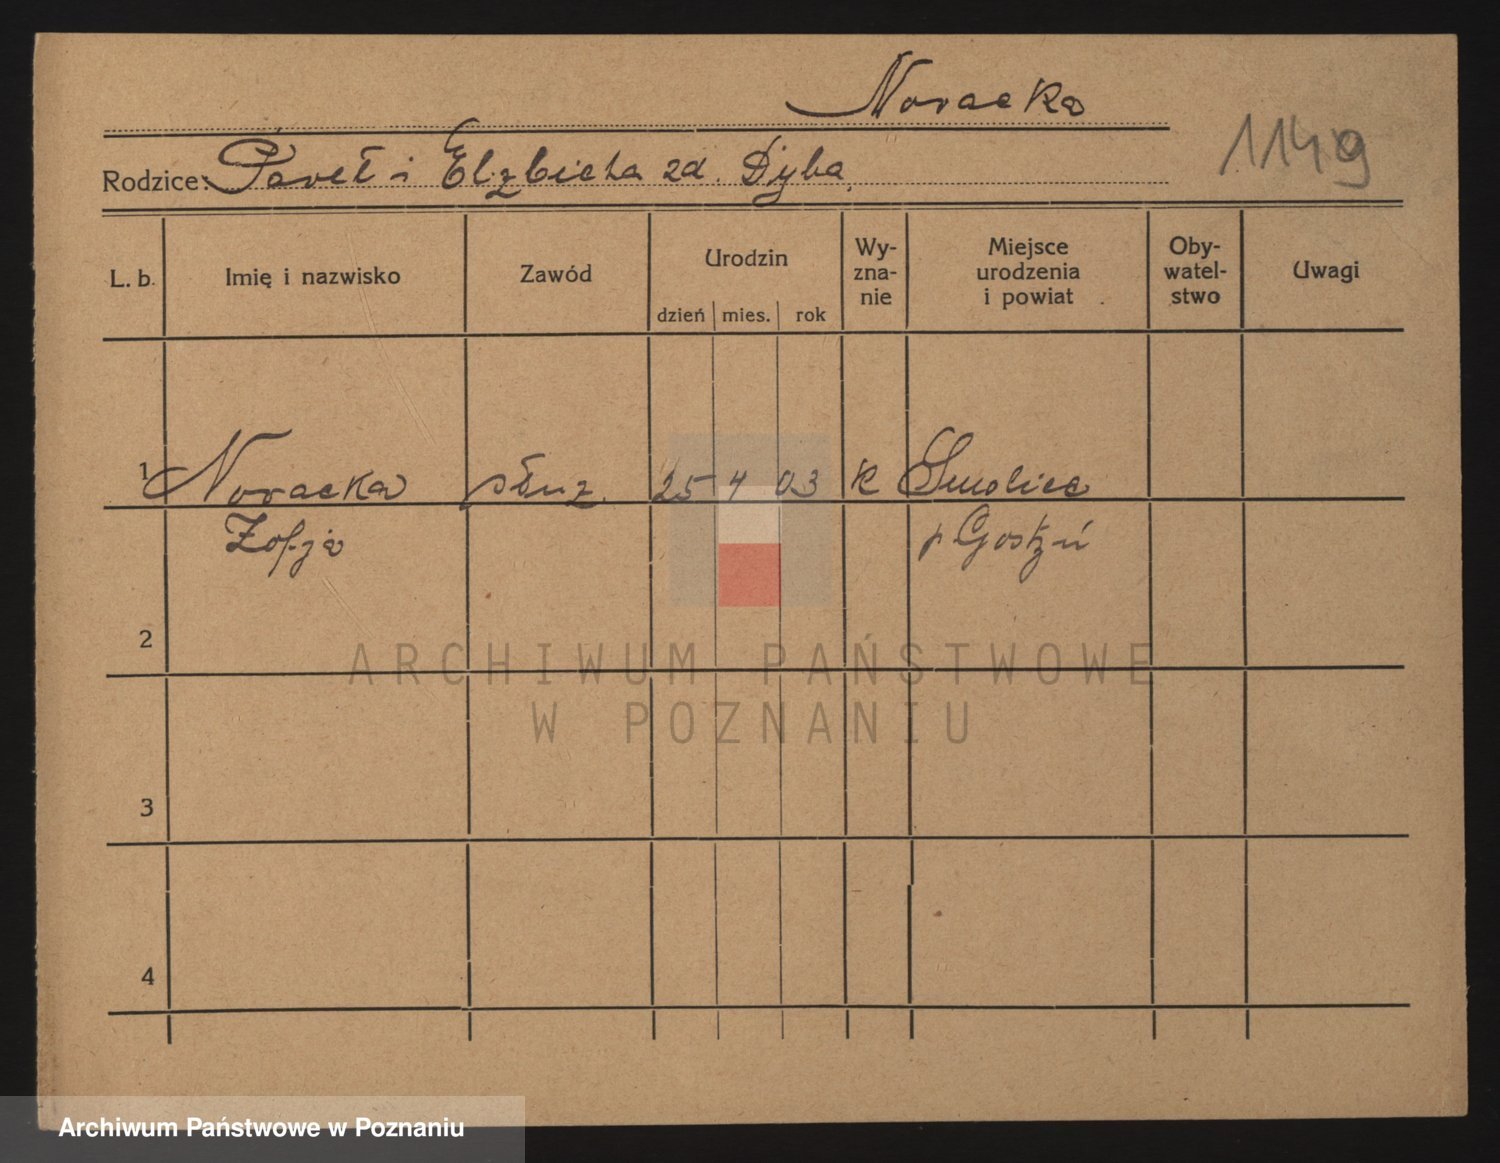 Noracka
1149
Rodzice: Paveł i Elzbieta zd. Dyba
L. b. Imię i nazwisko Zawód Urodzin dzień mies. rok Wy-
zna-
nie Miejsce
urodzenia
i powiat Oby-
watel-
stwo Uwagi
1 Noracka służ. 25 4 03 k Smolice
Zofja p Gostyń
2
3
4
ARCHIWUM PAŃSTWOWE
W POZNANIU
Archiwum Państwowe w Poznaniu